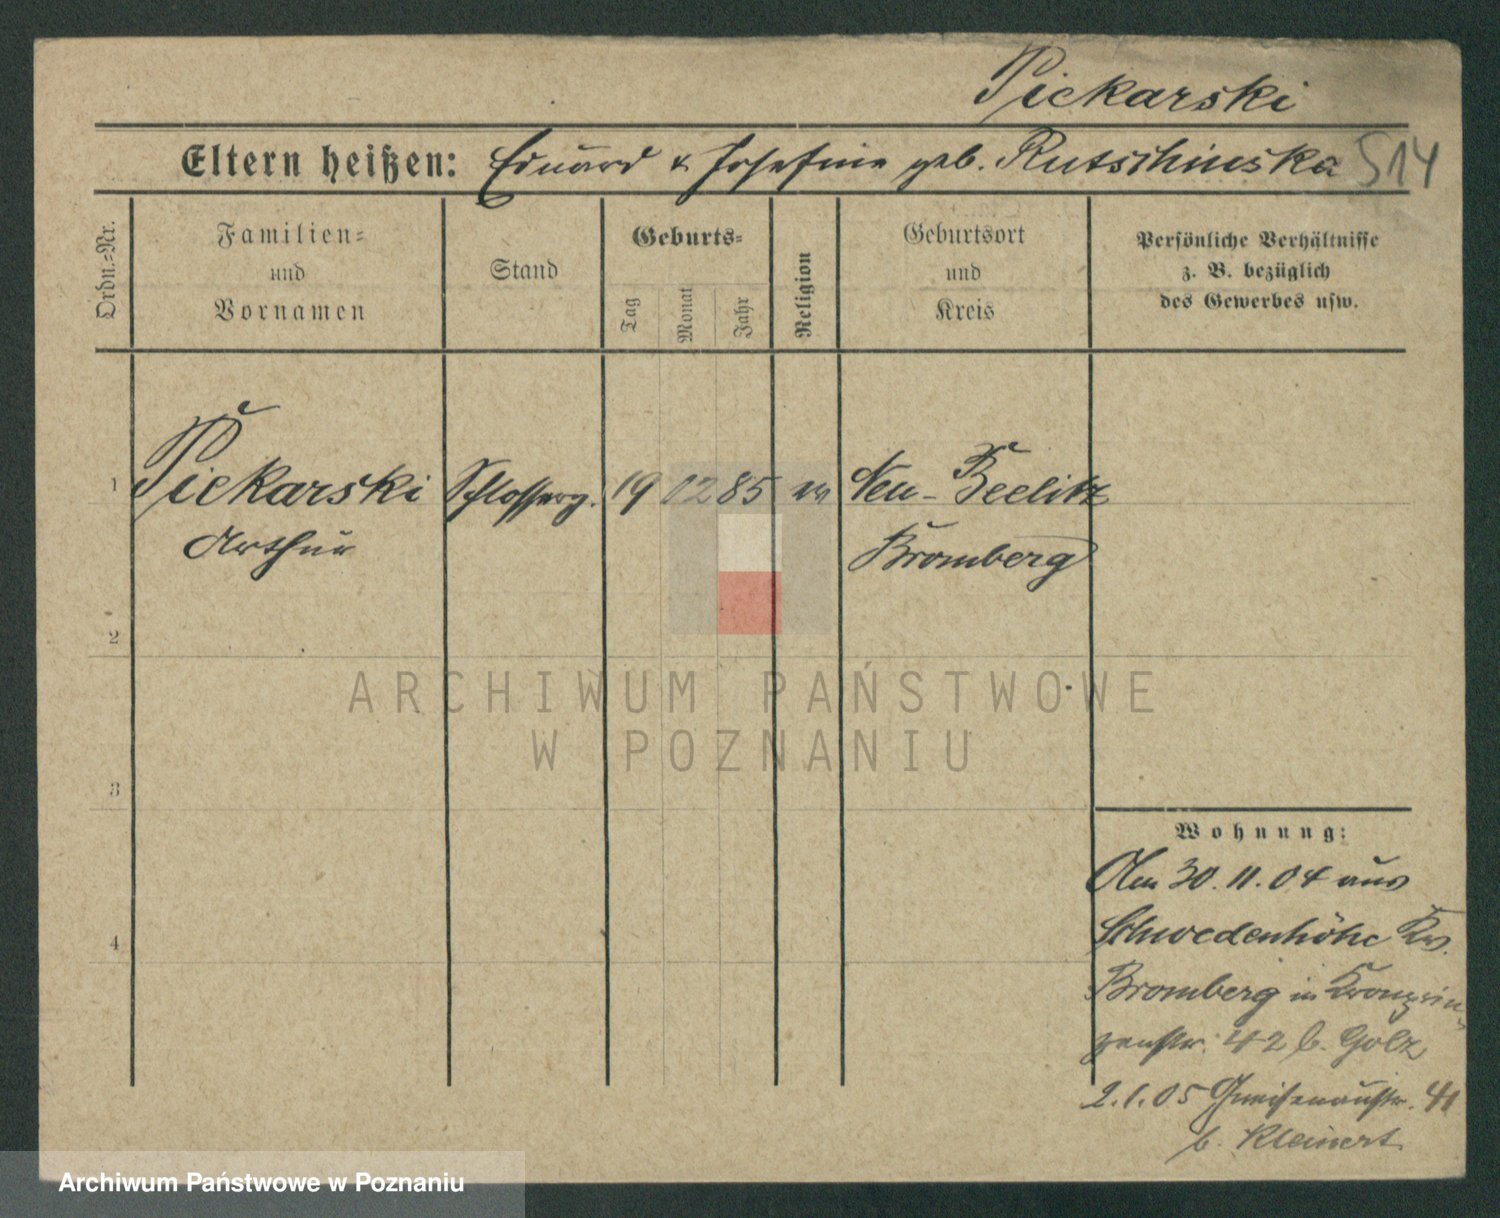 Piekarski
Eltern heißen: Eduard & Josefine geb. Rutschinska 514
Ordn.=Nr.
Familien=
und
Vornamen
Stand
Geburts=
Tag
Monat
Jahr
Religion
Geburtsort
und
Kreis
Persönliche Verhältnisse
z. B. bezüglich
des Gewerbes usw.
1 Piekarski Schlosserg. 19 02 85 ev Neu-Beelitz
Arthur Bromberg
2
3
4
ARCHIWUM PAŃSTWOWE
W POZNANIU
Wohnung:
Am 30.11.04 aus
Schwedenhöhe Kr.
Bromberg in Kronprin-
zenstr. 42 b. Golz
2.1.05 Gneisenaustr. 41
b. Kleinert
Archiwum Państwowe w Poznaniu